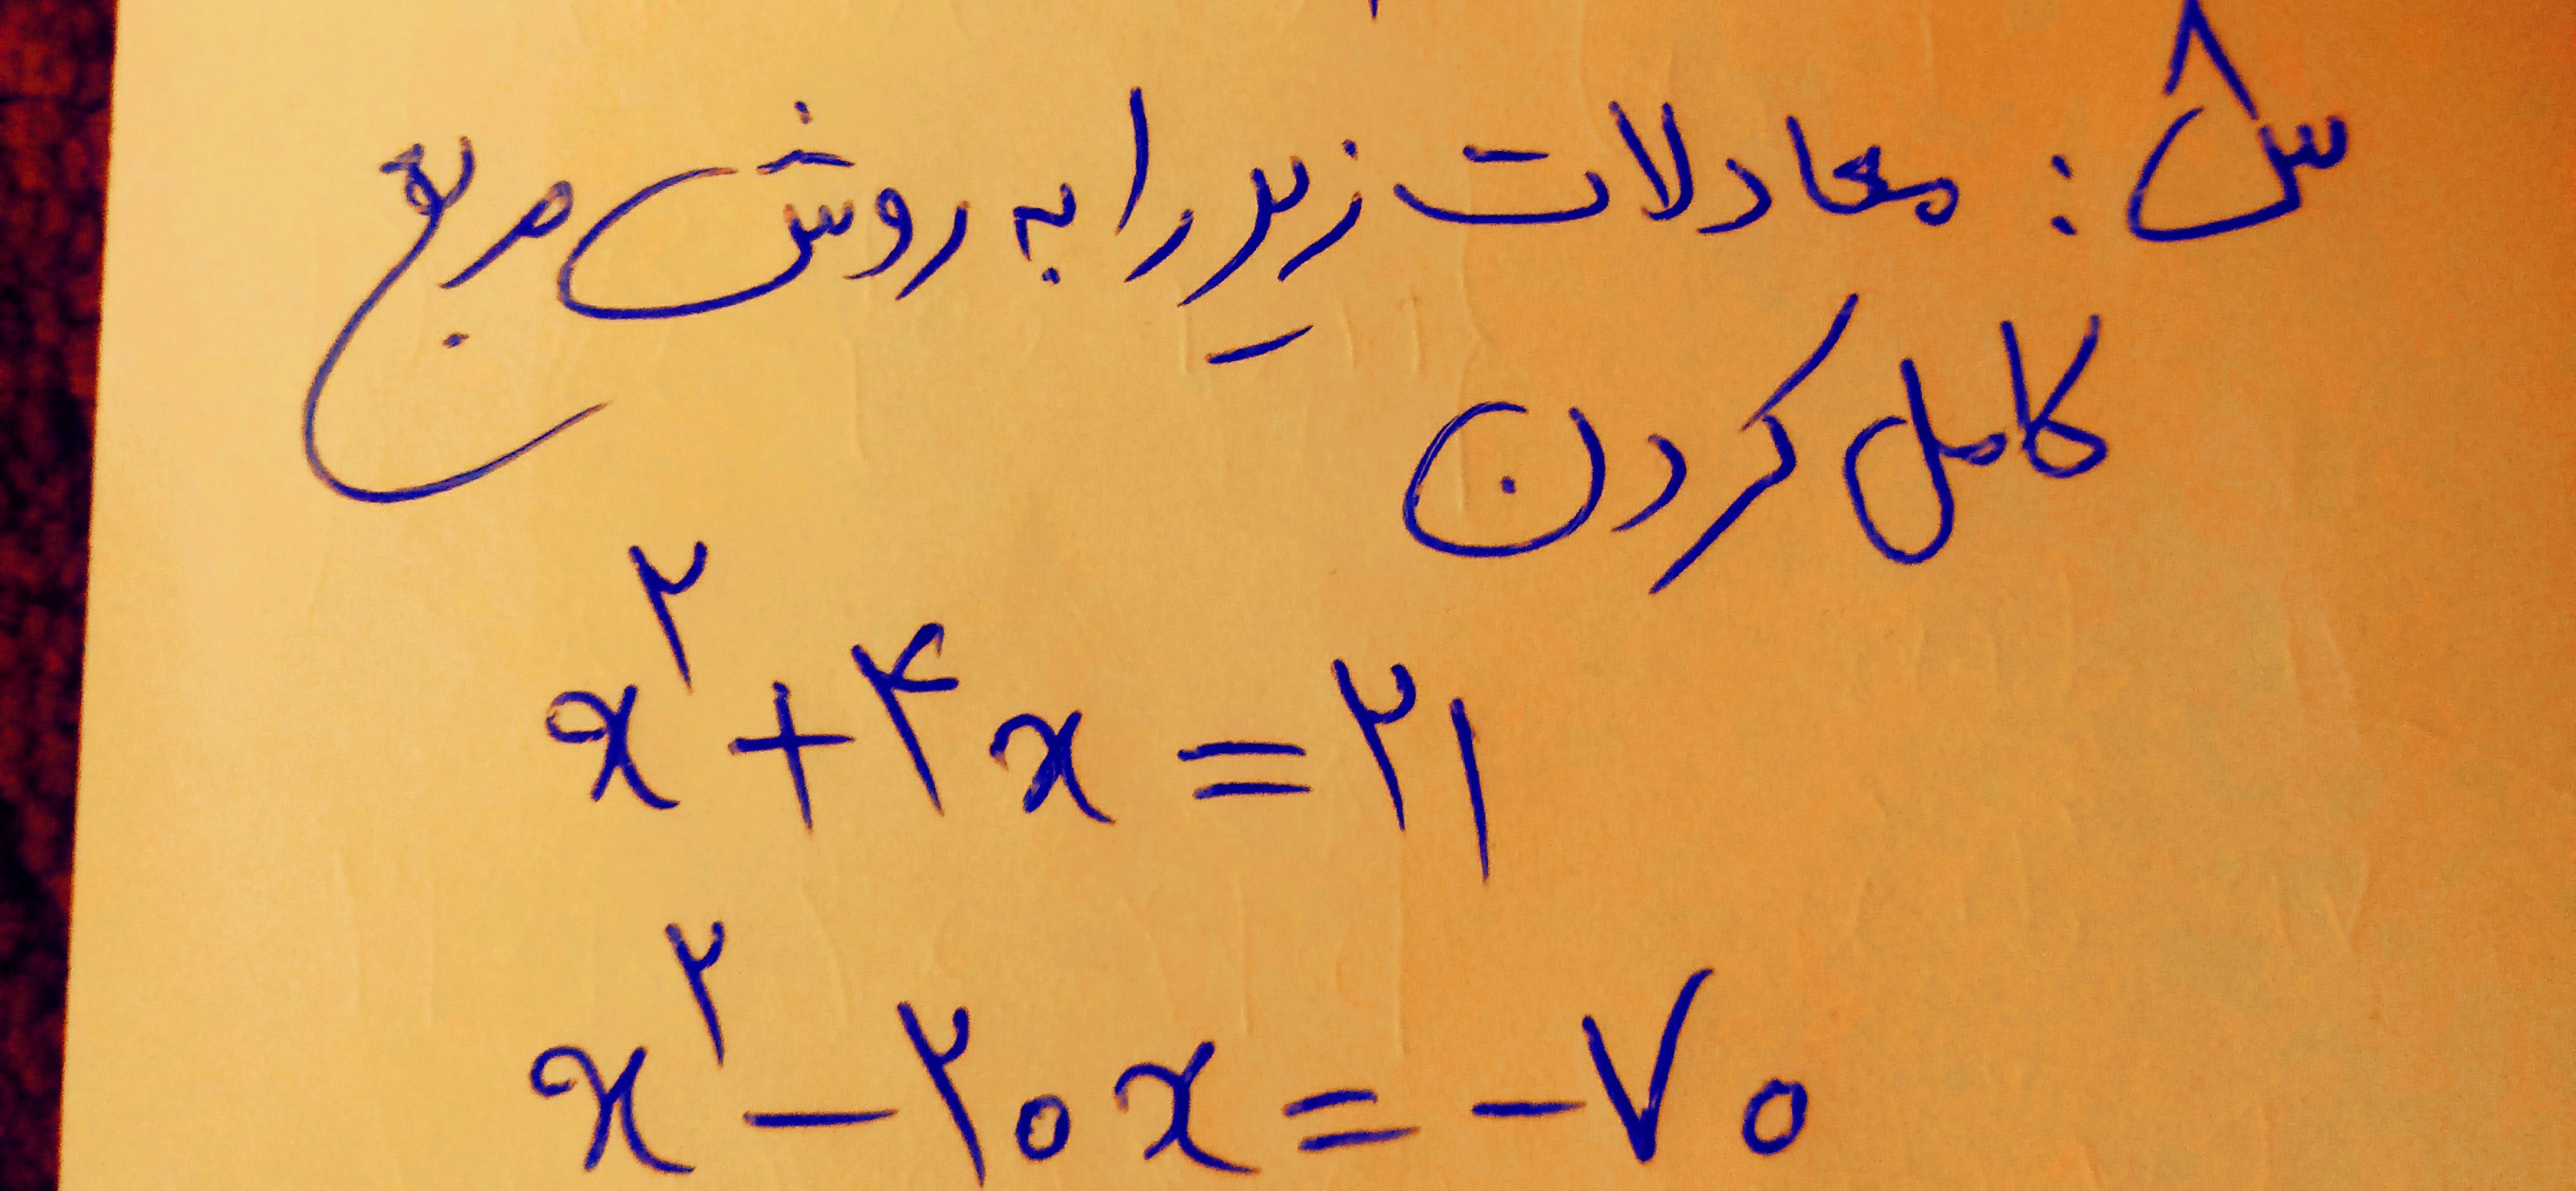 س۸: معادلات زیر را به روش مربع
کامل کردن
x^۲ + ۴x = ۲۱
x^۲ - ۲۰x = -۷۰